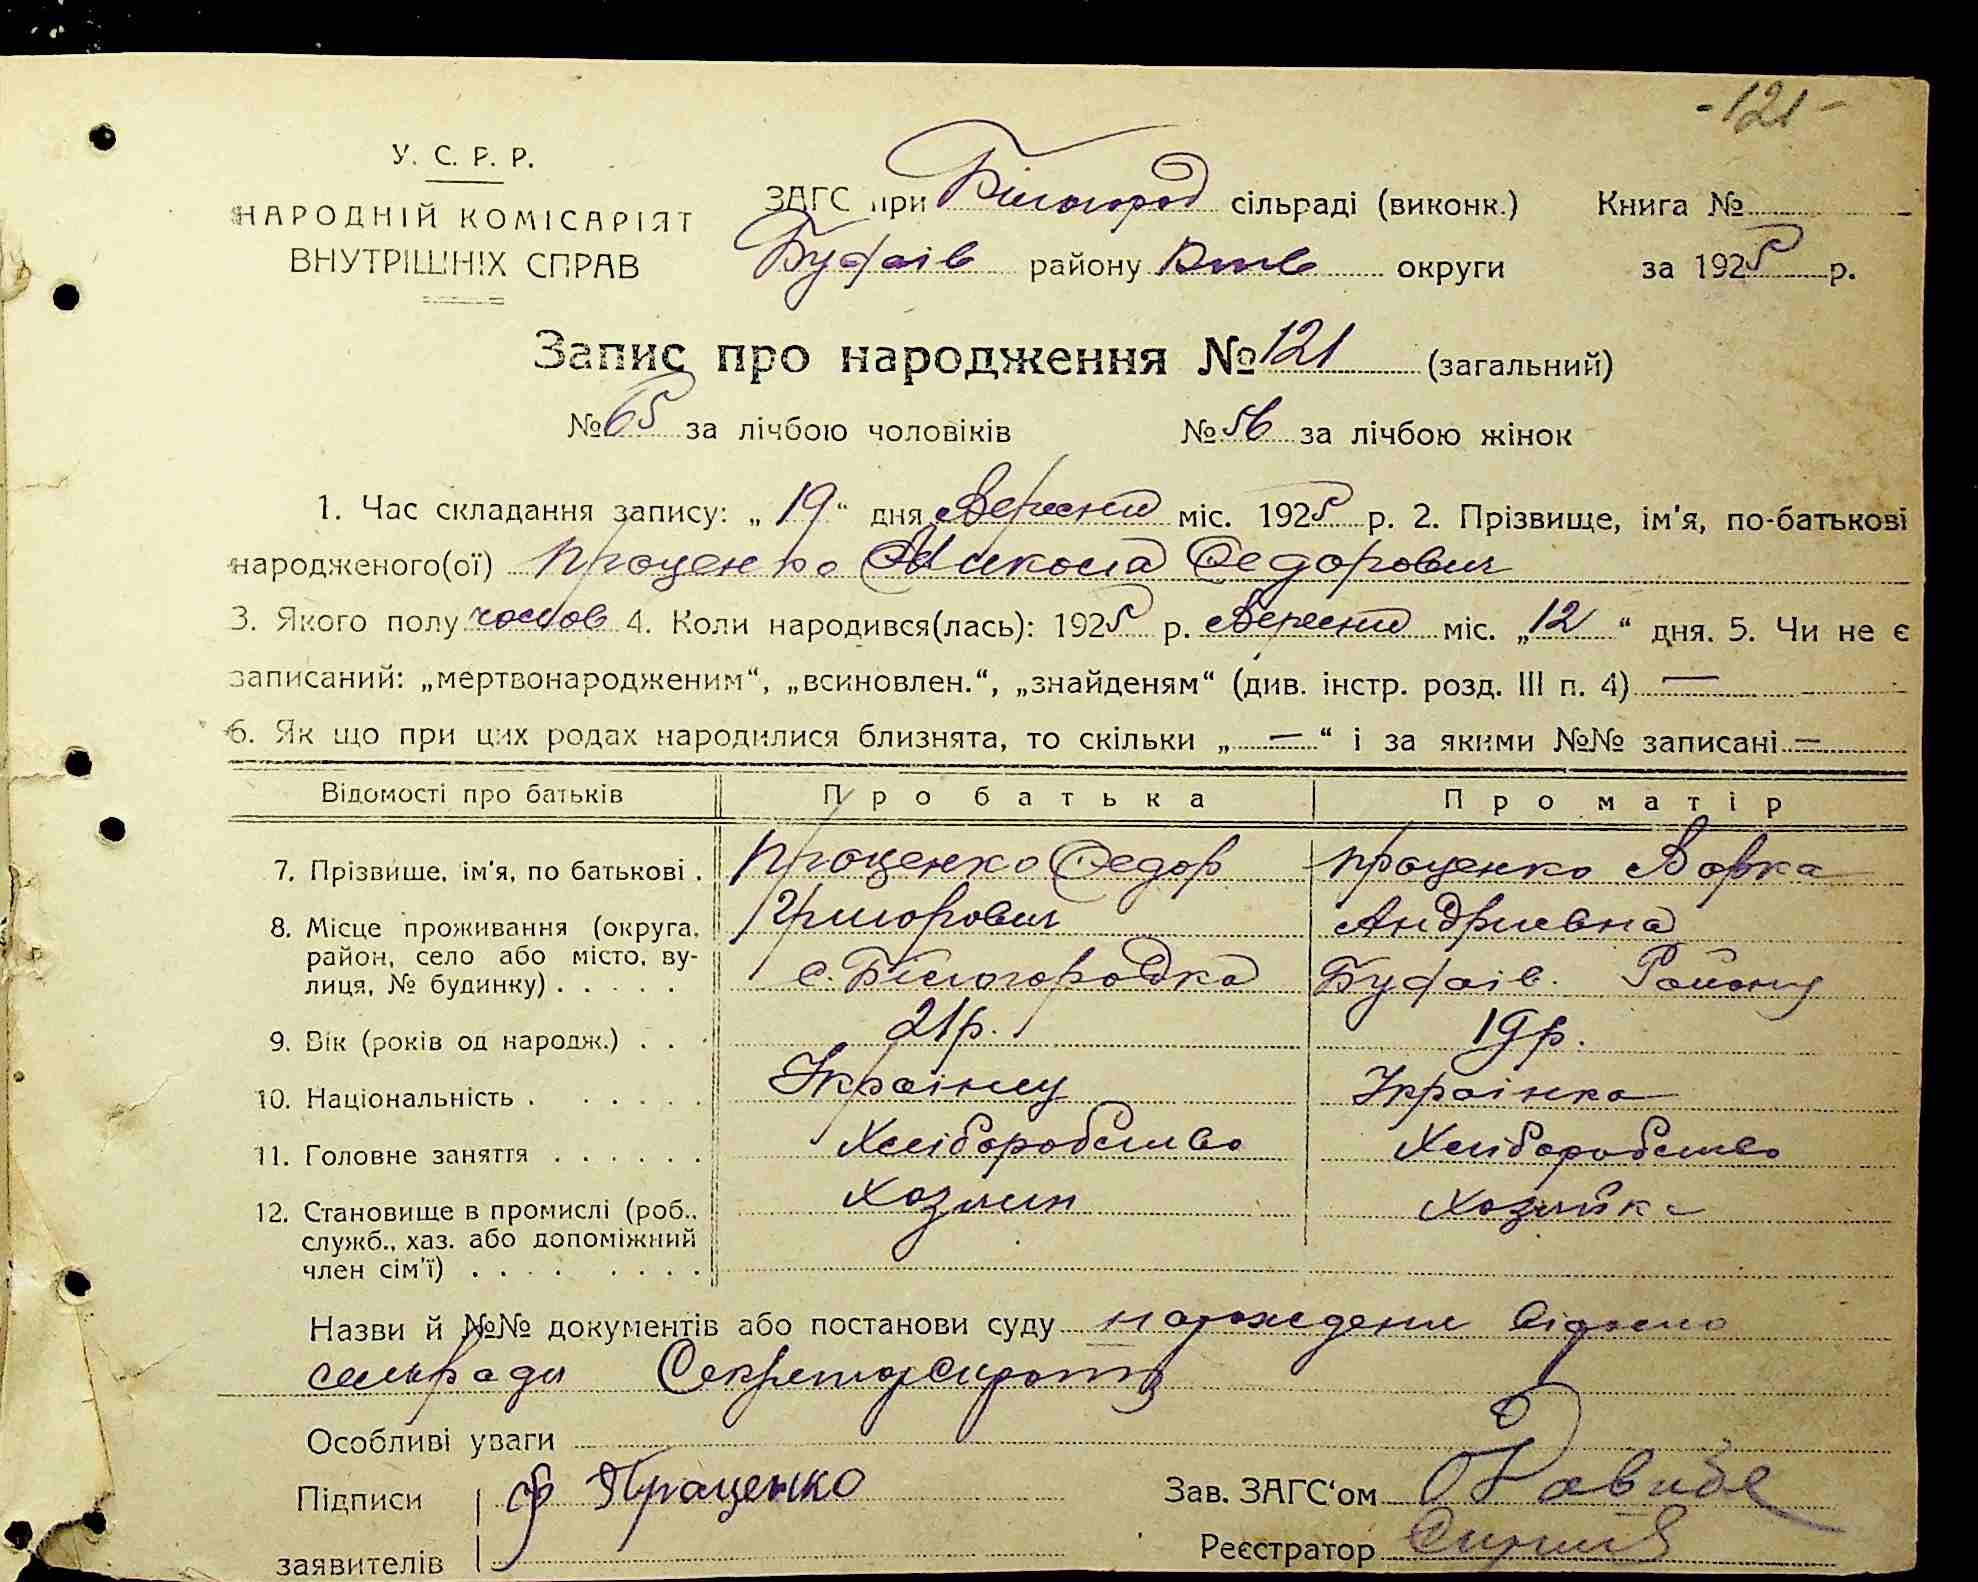 -121-
У. С. Р. Р.
НАРОДНІЙ КОМІСАРІЯТ
ВНУТРІШНІХ СПРАВ
ЗАГС при Білогород сільраді (виконк.) Книга №
Будаїв району Київ округи за 1925 р.
Запис про народження № 121 (загальний)
№ 65 за лічбою чоловіків № 56 за лічбою жінок
1. Час складання запису: „ 19 “ дня Вересня міс. 1925 р. 2. Прізвище, ім'я, по-батькові
народженого(ої) Проценко Микола Федорович
3. Якого полу чолов 4. Коли народився(лась): 1925 р. Вересня міс. „ 12 “ дня. 5. Чи не є
записаний: „мертвонародженим“, „всиновлен.“, „знайденям“ (див. інстр. розд. III п. 4) —
6. Як що при цих родах народилися близнята, то скільки „ — “ і за якими №№ записані —
Відомості про батьків Про батька Про матір
7. Прізвише, ім'я, по батькові . Проценко Федор Проценко Варка
Григорович Андриевна
8. Місце проживання (округа,
район, село або місто, ву-
лиця, № будинку) . . . . . с. Білогородка Будаів. Району
9. Вік (років од народж.) . . . 21р. 19р.
10. Національність . . . . . . Українец Українка
11. Головне заняття . . . . . . Хліборобство Хліборобство
12. Становище в промислі (роб., Хозяин Хозяйка
служб., хаз. або допоміжний
член сім'ї) . . . . . . . .
Назви й №№ документів або постанови суду
сельради
Особливі уваги
Підписи Ф Проценко Зав. ЗАГС‘ом
заявителів Реєстратор